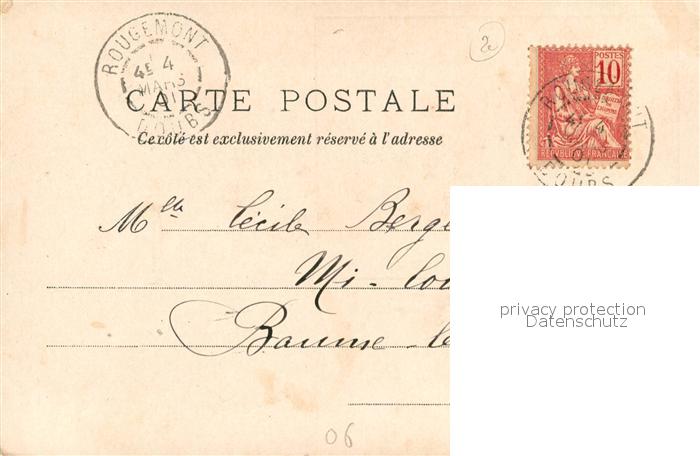 ROUGEMONT
4E 4
MARS
DOUBS
2e
POSTES
10
RÉPUBLIQUE FRANÇAISE
DOUBS
CARTE POSTALE
Ce côté est exclusivement réservé à l'adresse
Mlle Cécile Berge
Mi-Cou
Baume-le
privacy protection
Datenschutz
06